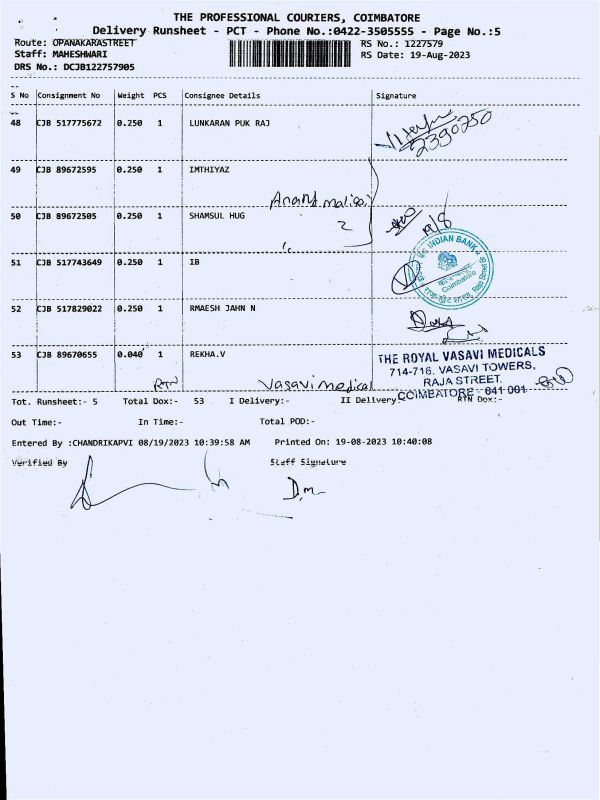 THE PROFESSIONAL COURIERS, COIMBATORE
Delivery Runsheet - PCT - Phone No.:0422-3505555 - Page No.:5
Route: OPANAKARASTREET
RS No.: 1227579
Staff: MAHESHWARI
RS Date: 19-Aug-2023
DRS No.: DCJB122757905
S No Consignment No Weight PCS Consignee Details Signature
48 CJB 517775672 0.250 1 LUNKARAN PUK RAJ
2390250
49 CJB 89672595 0.250 1 IMTHIYAZ
Anand
2
50 CJB 89672505 0.250 1 SHAMSUL HUG
19/8
INDIAN BANK
Coimbatore
51 CJB 517743649 0.250 1 IB
52 CJB 517829022 0.250 1 RMAESH JAHN N
53 CJB 89670655 0.040 1 REKHA.V
RTN Vasavi medical
THE ROYAL VASAVI MEDICALS
714-716, VASAVI TOWERS,
RAJA STREET,
COIMBATORE - 641 001
Tot. Runsheet:- 5 Total Dox:- 53 I Delivery:- II Delivery:- RTN Dox:-
Out Time:- In Time:- Total POD:-
Entered By :CHANDRIKAPVI 08/19/2023 10:39:58 AM Printed On: 19-08-2023 10:40:08
Verified By Staff Signature